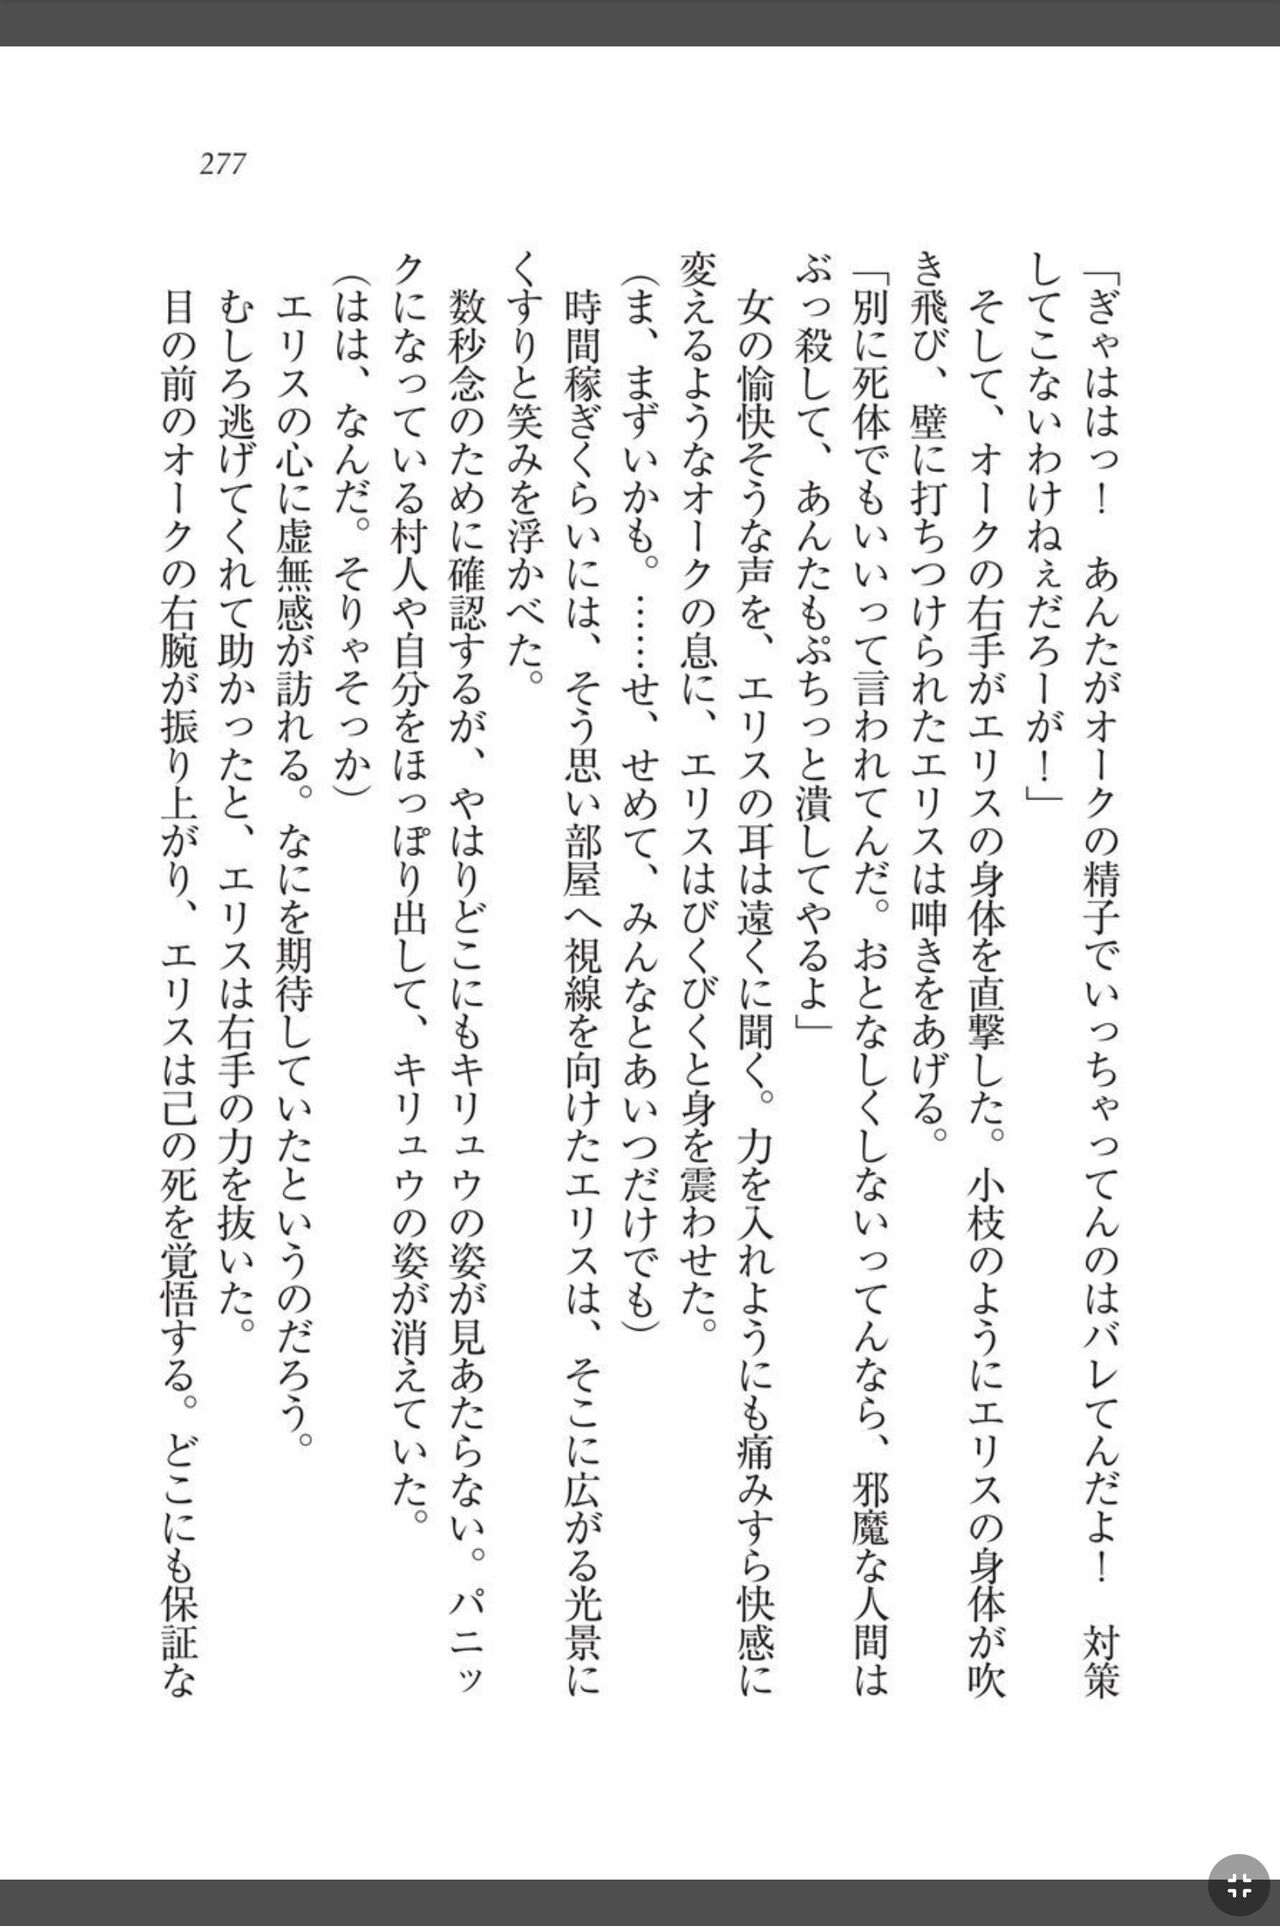 277
「ぎゃははっ！　あんたがオークの精子でいっちゃってんのはバレてんだよ！　対策
してこないわけねぇだろーが！」
そして、オークの右手がエリスの身体を直撃した。小枝のようにエリスの身体が吹
き飛び、壁に打ちつけられたエリスは呻きをあげる。
「別に死体でもいいって言われてんだ。おとなしくしないってんなら、邪魔な人間は
ぶっ殺して、あんたもぷちっと潰してやるよ」
女の愉快そうな声を、エリスの耳は遠くに聞く。力を入れようにも痛みすら快感に
変えるようなオークの息に、エリスはびくびくと身を震わせた。
（ま、まずいかも。……せ、せめて、みんなとあいつだけでも）
時間稼ぎくらいには、そう思い部屋へ視線を向けたエリスは、そこに広がる光景に
くすりと笑みを浮かべた。
数秒念のために確認するが、やはりどこにもキリュウの姿が見あたらない。パニッ
クになっている村人や自分をほっぽり出して、キリュウの姿が消えていた。
（はは、なんだ。そりゃそっか）
エリスの心に虚無感が訪れる。なにを期待していたというのだろう。
むしろ逃げてくれて助かったと、エリスは右手の力を抜いた。
目の前のオークの右腕が振り上がり、エリスは己の死を覚悟する。どこにも保証な